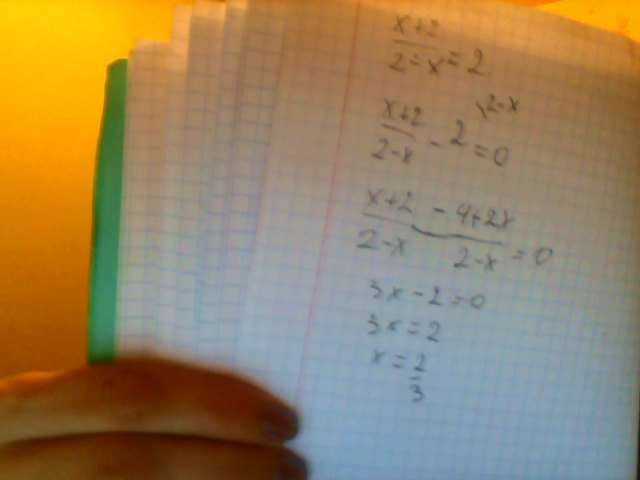 x+2
2-x = 2
x+2
2-x - 2 \2-x = 0
x+2 - 4+2x
2-x 2-x = 0
3x-2=0
3x=2
x = 2
3